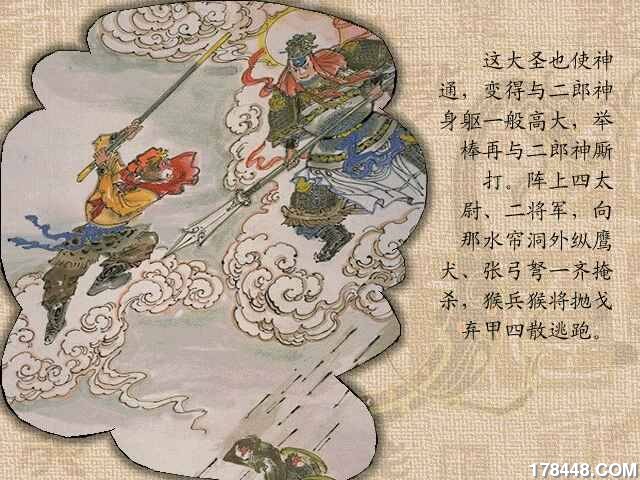 这大圣也使神
通，变得与二郎神
身躯一般高大，举
棒再与二郎神厮
打。阵上四太
尉、二将军，向
那水帘洞外纵鹰
犬、张弓弩一齐掩
杀，猴兵猴将抛戈
弃甲四散逃跑。
178448.COM